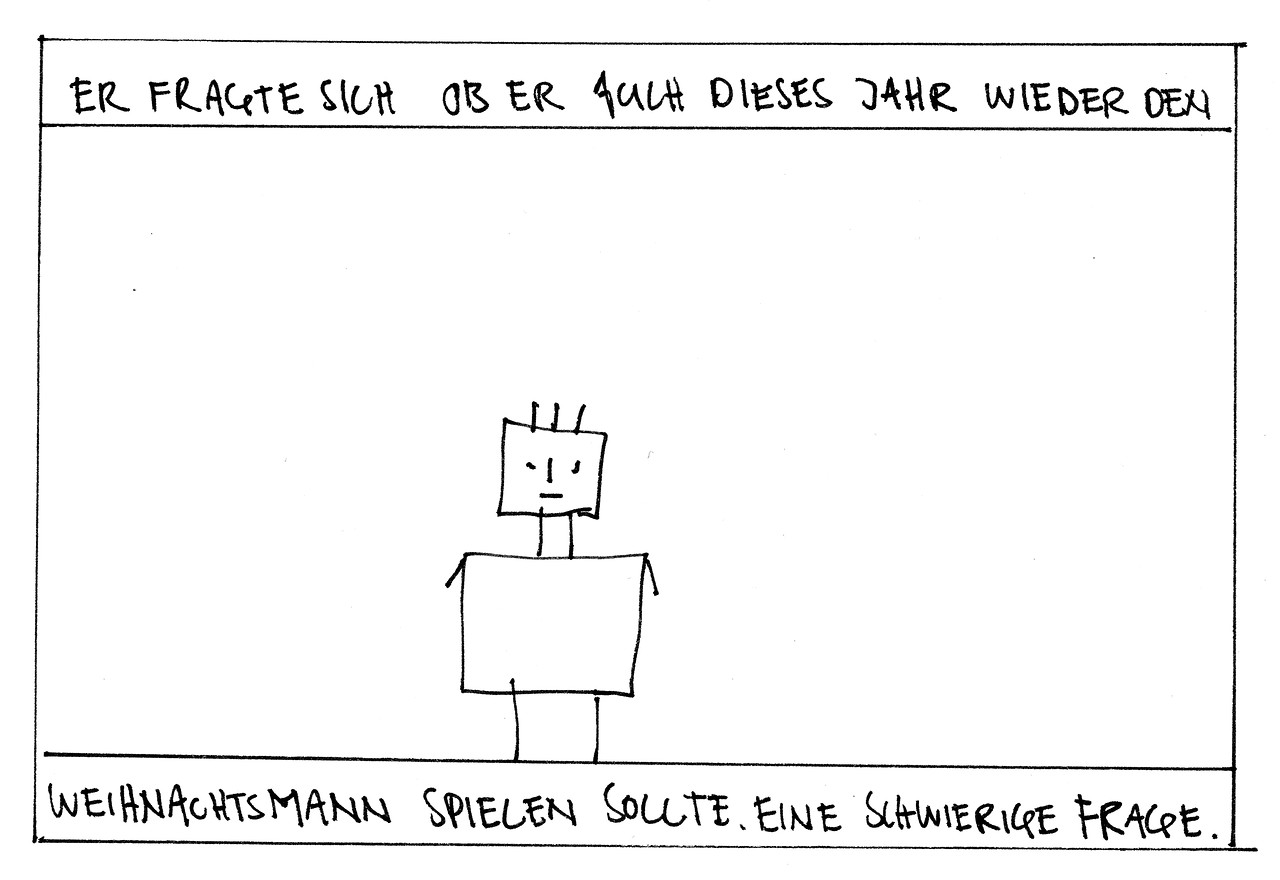 ER FRAGTE SICH OB ER AUCH DIESES JAHR WIEDER DEN
WEIHNACHTSMANN SPIELEN SOLLTE. EINE SCHWIERIGE FRAGE.